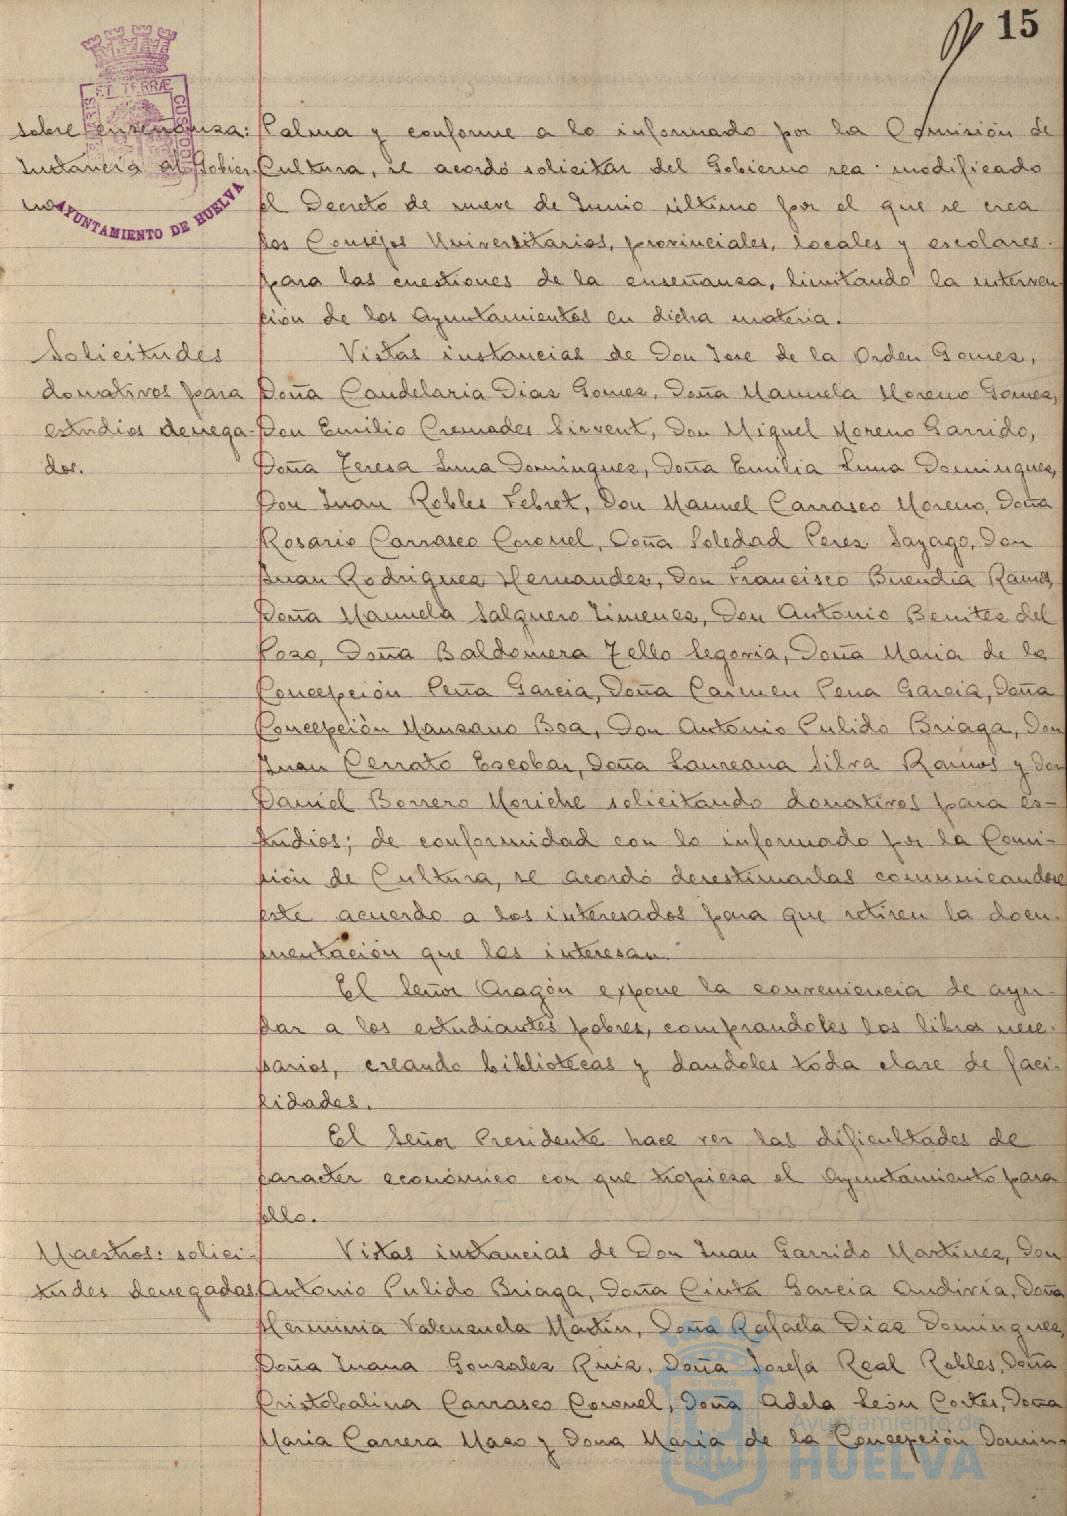 15
sobre enseñanza:
Instancia al Gobier-
no.
PORTUS MARIS ET TERRÆ CUSTODIA
AYUNTAMIENTO DE HUELVA
Palma y conforme a lo informado por la Comisión de
Cultura, se acordó solicitar del Gobierno sea modificado
el Decreto de nueve de Junio último por el que se crea
los Consejos Universitarios, provinciales, locales y escolares
para las cuestiones de la enseñanza, limitando la interven-
ción de los Ayuntamientos en dicha materia.
Solicitudes
donativos para
estudios denega-
dos.
Vistas instancias de Don Jose de la Orden Gomez,
Doña Candelaria Diaz Gomez, Doña Manuela Moreno Gomez,
Don Emilio Cremades Sirvent, Don Miguel Moreno Garrido,
Doña Teresa Luna Dominguez, Doña Emilia Luna Dominguez,
Don Juan Robles Febret, Don Manuel Carrasco Moreno, Doña
Rosario Carrasco Coronel, Doña Soledad Perez Sayago, Don
Juan Rodriguez Hernandez, Don Francisco Buendia Ramos,
Doña Manuela Salguero Jimenez, Don Antonio Benitez del
Pozo, Doña Baldomera Tello Segovia, Doña Maria de la
Concepción Peña Garcia, Doña Carmen Pena Garcia, Doña
Concepción Manzano Boa, Don Antonio Pulido Briaga, Don
Juan Cerrato Escobar, Doña Laureana Silva Ramos y Don
Daniel Borrero Moriche solicitando donativos para es-
tudios; de conformidad con lo informado por la Comi-
sión de Cultura, se acordó desestimarlas comunicandose
este acuerdo a los interesados para que retiren la docu-
mentación que les interesan.
El Señor Aragón expone la conveniencia de ayu-
dar a los estudiantes pobres, comprandoles los libros nece-
sarios, creando bibliotecas y dandoles toda clase de faci-
lidades.
El Señor Presidente hace ver las dificultades de
caracter económico con que tropieza el Ayuntamiento para
ello.
Maestros: solici-
tudes denegadas
Vistas instancias de Don Juan Garrido Martinez, Don
Antonio Pulido Briaga, Doña Cinta Garcia Andivia, Doña
Herminia Valenzuela Martín, Doña Rafaela Diaz Dominguez,
Doña Juana Gonzalez Ruiz, Doña Josefa Real Robles, Doña
Cristobalina Carrasco Coronel, Doña Adela León Cortes, Doña
Maria Carrera Mazo y Dona Maria de la Concepción Domin-
Ayuntamiento de
HUELVA